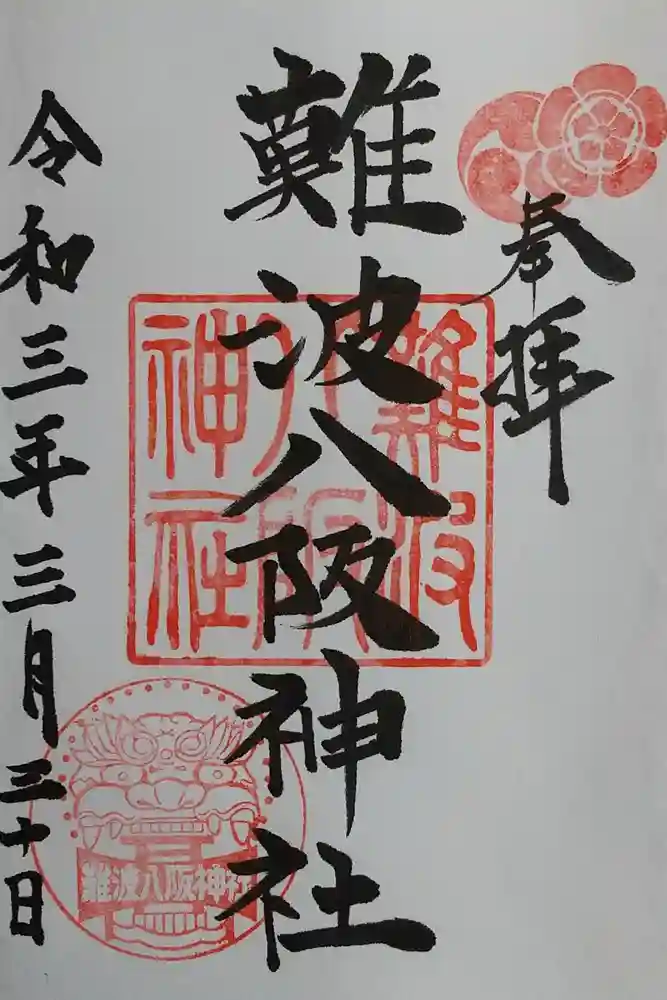 奉拝
難波八阪神社
難波八阪神社
令和三年三月三十日
難波八阪神社